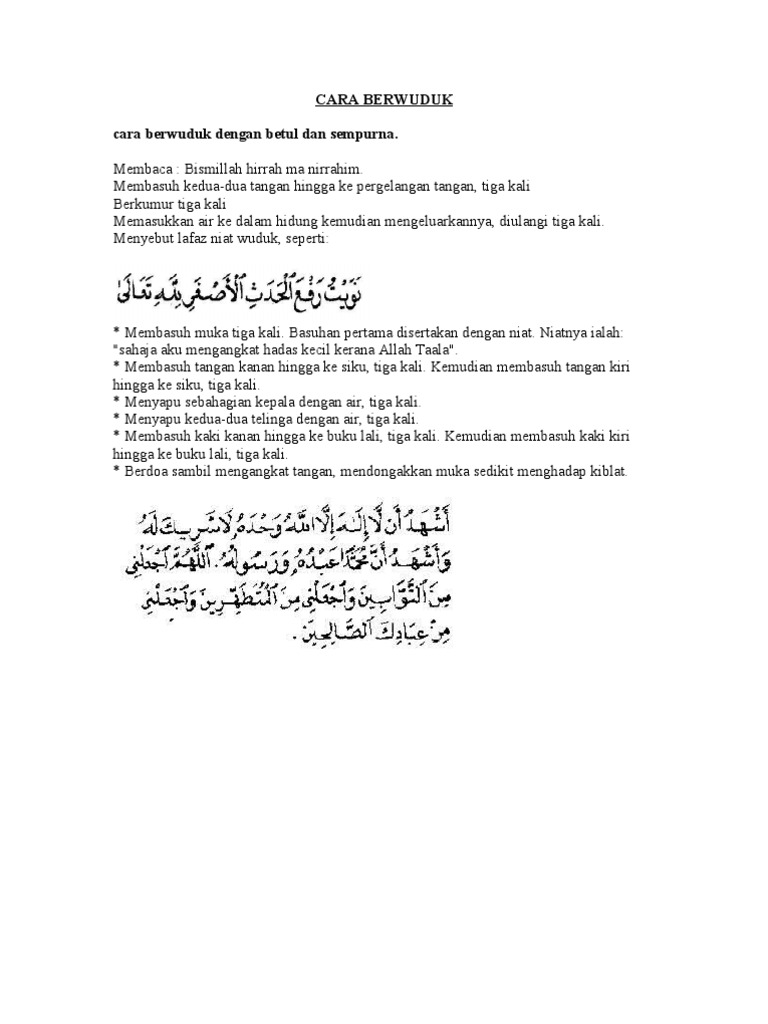 CARA BERWUDUK
cara berwuduk dengan betul dan sempurna.
Membaca : Bismillah hirrah ma nirrahim.
Membasuh kedua-dua tangan hingga ke pergelangan tangan, tiga kali
Berkumur tiga kali
Memasukkan air ke dalam hidung kemudian mengeluarkannya, diulangi tiga kali.
Menyebut lafaz niat wuduk, seperti:
نَوَيْتُ رَفْعَ الْحَدَثِ الْأَصْغَرِ لِلَّهِ تَعَالَىٰ
* Membasuh muka tiga kali. Basuhan pertama disertakan dengan niat. Niatnya ialah:
"sahaja aku mengangkat hadas kecil kerana Allah Taala".
* Membasuh tangan kanan hingga ke siku, tiga kali. Kemudian membasuh tangan kiri
hingga ke siku, tiga kali.
* Menyapu sebahagian kepala dengan air, tiga kali.
* Menyapu kedua-dua telinga dengan air, tiga kali.
* Membasuh kaki kanan hingga ke buku lali, tiga kali. Kemudian membasuh kaki kiri
hingga ke buku lali, tiga kali.
* Berdoa sambil mengangkat tangan, mendongakkan muka sedikit menghadap kiblat.
أَشْهَدُ أَنْ لَّا إِلَـٰهَ إِلَّا اللَّهُ وَحْدَهُ لَا شَرِيكَ لَهُ
وَأَشْهَدُ أَنَّ مُحَمَّدًا عَبْدُهُ وَرَسُولُهُ. اللَّهُمَّ اجْعَلْنِي
مِنَ التَّوَّابِينَ وَاجْعَلْنِي مِنَ الْمُتَطَهِّرِينَ وَاجْعَلْنِي
مِنْ عِبَادِكَ الصَّالِحِينَ.